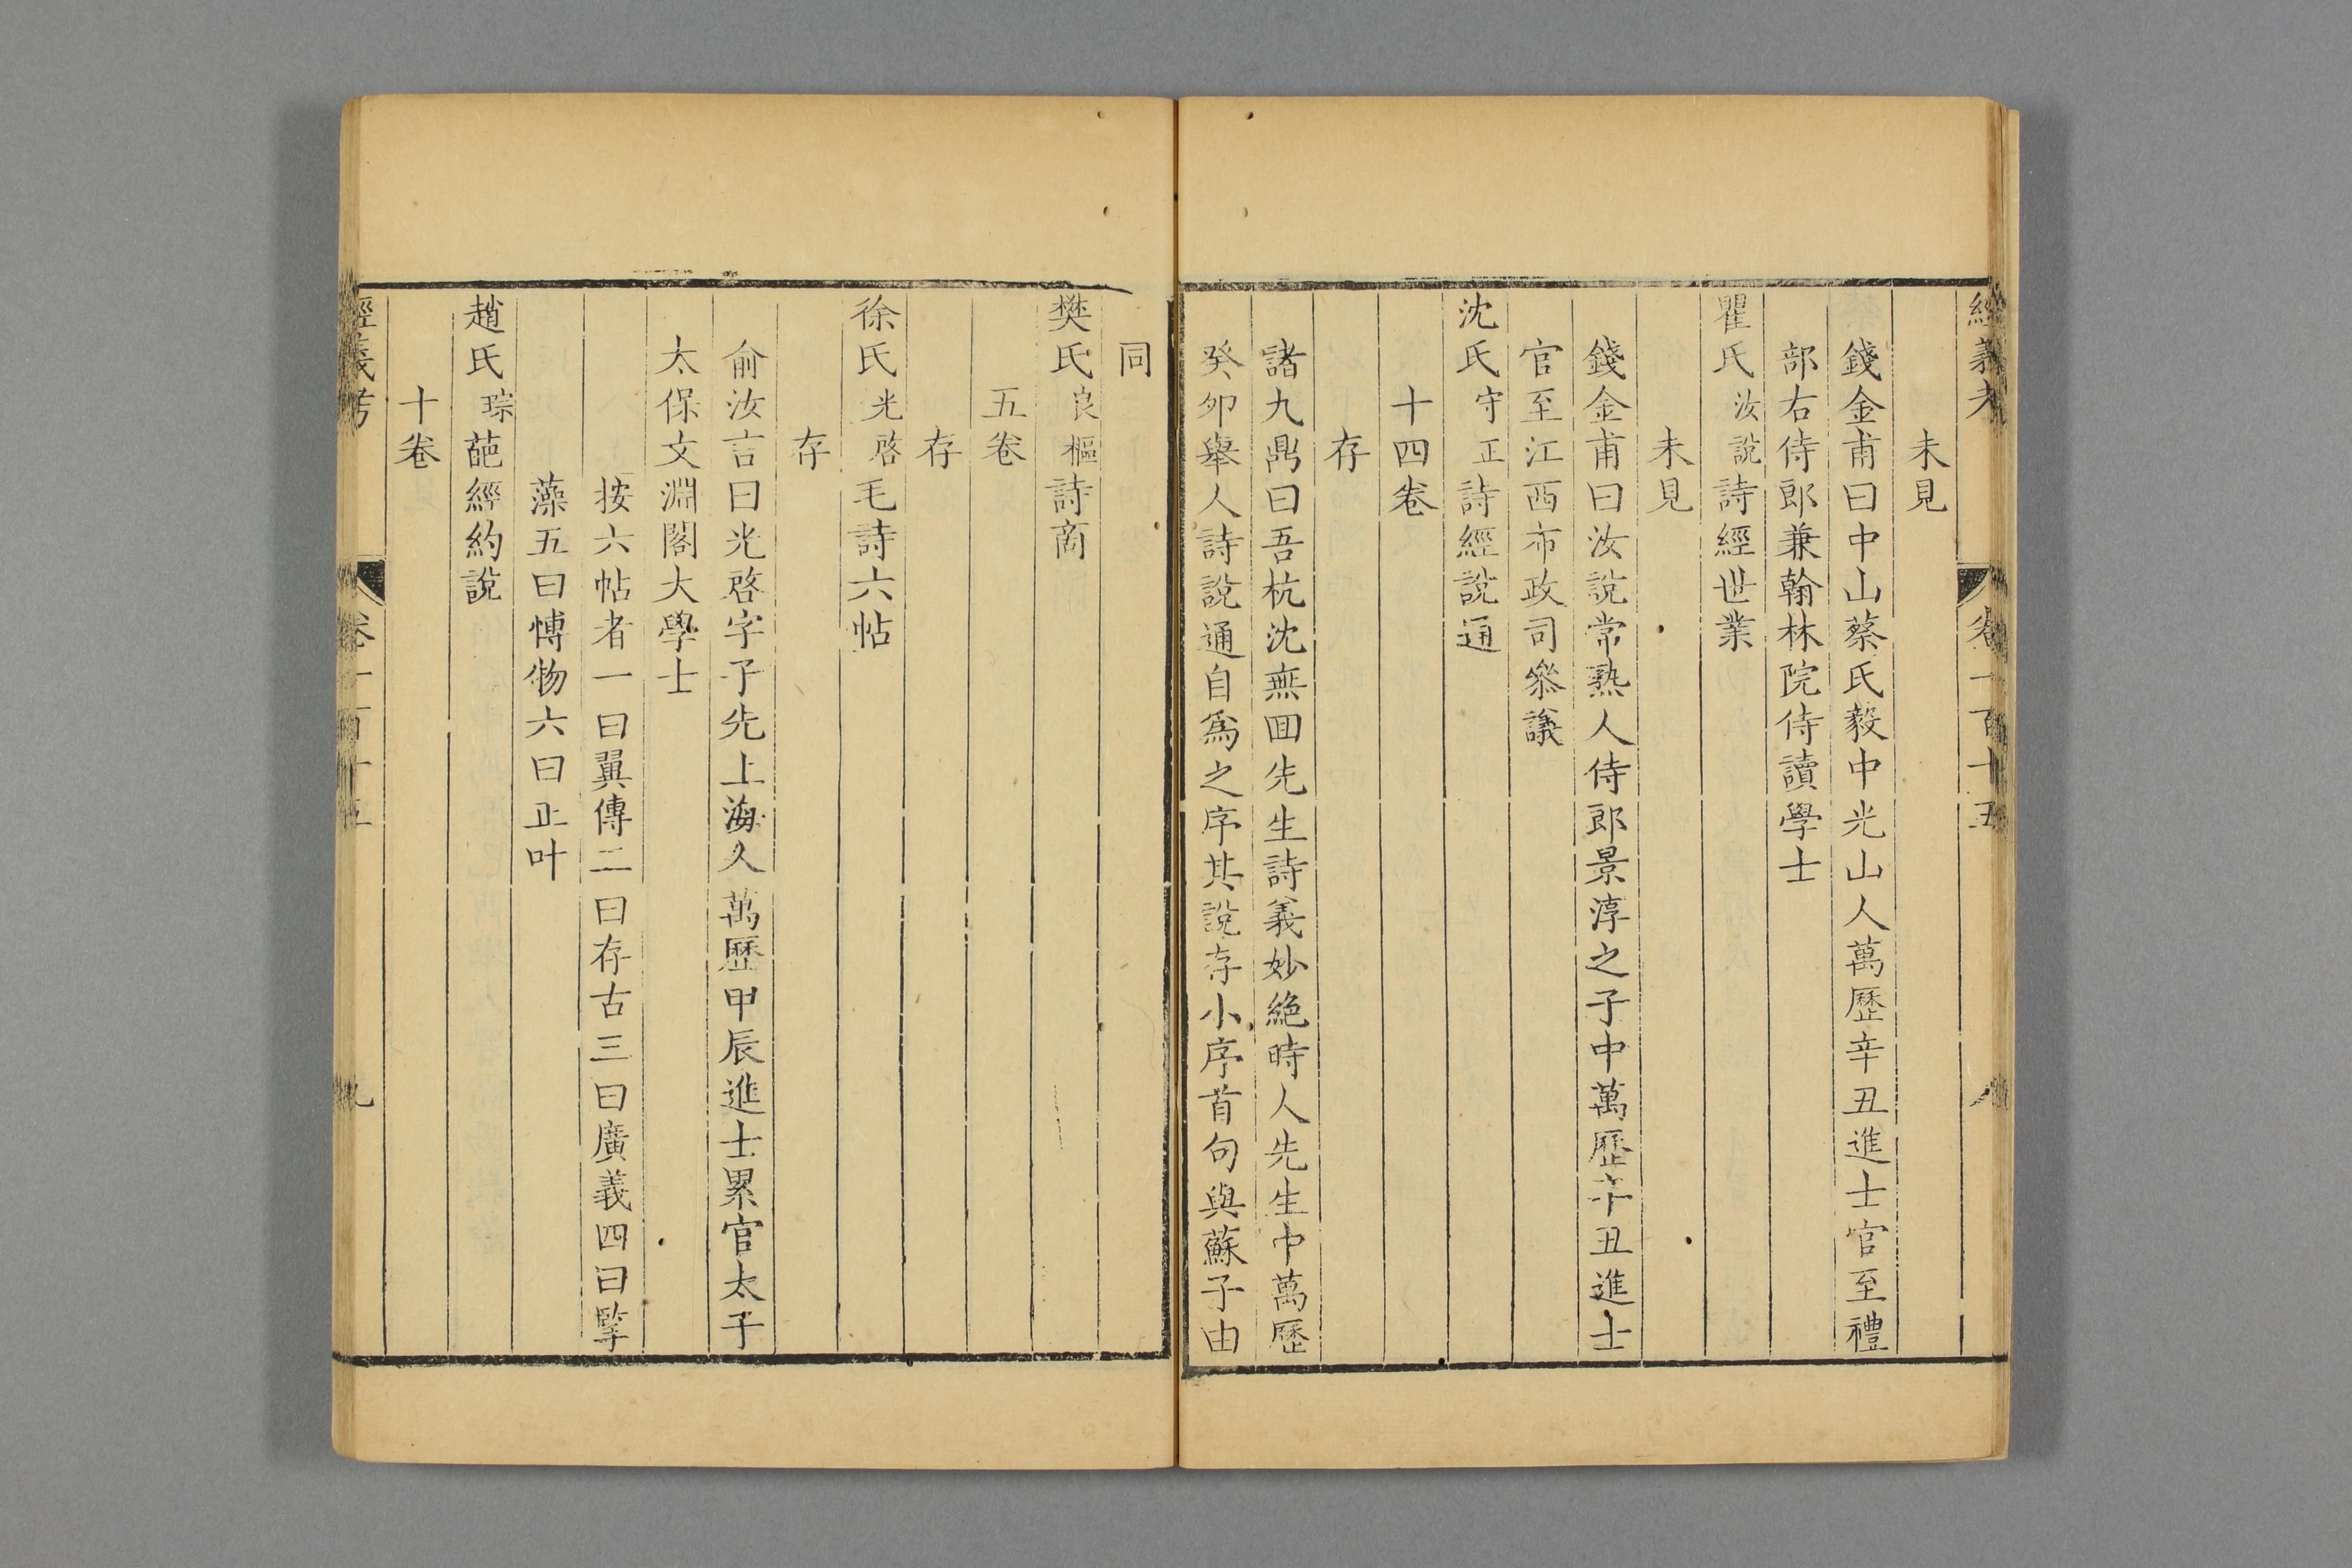 經義考 卷一百十五 八
未見
錢金甫曰中山蔡氏毅中光山人萬歷辛丑進士官至禮
部右侍郎兼翰林院侍讀學士
瞿氏汝說詩經世業
未見
錢金甫曰汝說常熟人侍郎景淳之子中萬歷辛丑進士
官至江西布政司參議
沈氏守正詩經說通
十四卷
存
諸九鼎曰吾杭沈無回先生詩義妙絶時人先生中萬歷
癸卯舉人詩說通自爲之序其說存小序首句與蘇子由
同
樊氏良樞詩商
五卷
存
徐氏光啓毛詩六帖
存
俞汝言曰光啓字子先上海人萬歷甲辰進士累官太子
太保文淵閣大學士
按六帖者一曰翼傳二曰存古三曰廣義四曰擥
藻五曰博物六曰正叶
趙氏琮葩經約說
十卷
經義考 卷一百十五 九